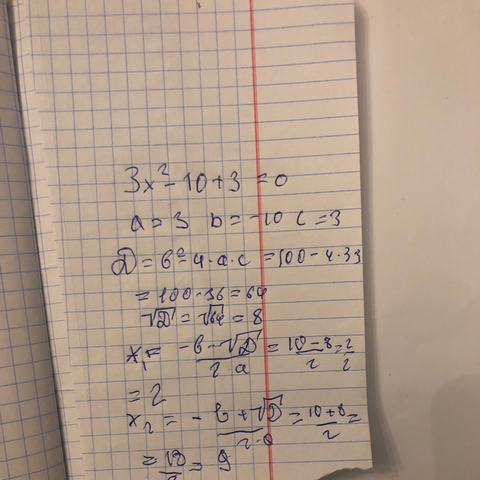 3x² - 10 + 3 = 0
a = 3 b = -10 c = 3
D = b² - 4·a·c = 100 - 4·3·3
= 100 - 36 = 64
√D = √64 = 8
x₁ = -b - √D / 2a = 10 - 8 / 2 = 2 / 2
= 2
x₂ = -b + √D / 2·a = 10 + 8 / 2 =
= 18 / 2 = 9